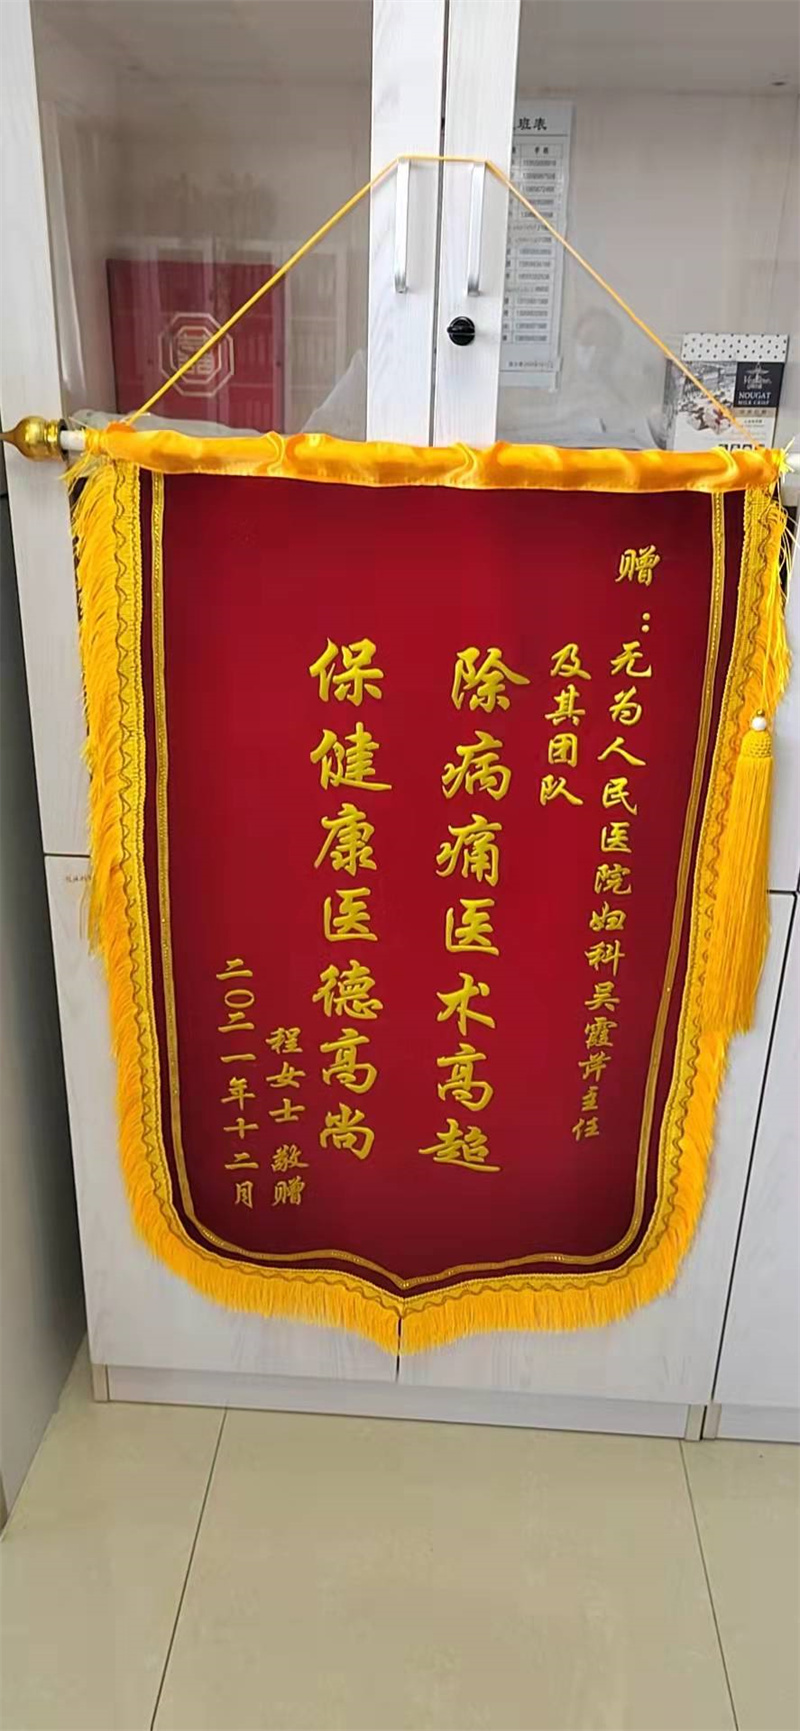 赠：无为人民医院妇科吴霞芹主任
及其团队
除病痛医术高超
保健康医德高尚
程女士 敬赠
二〇二一年十二月
班表
NOUGAT
MILK CRISP